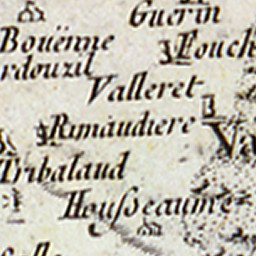 Guerin
Bouënne
Fouch
rdouzil
Valleret
Rimaudiere
Va
Tribalaud
Housseaume